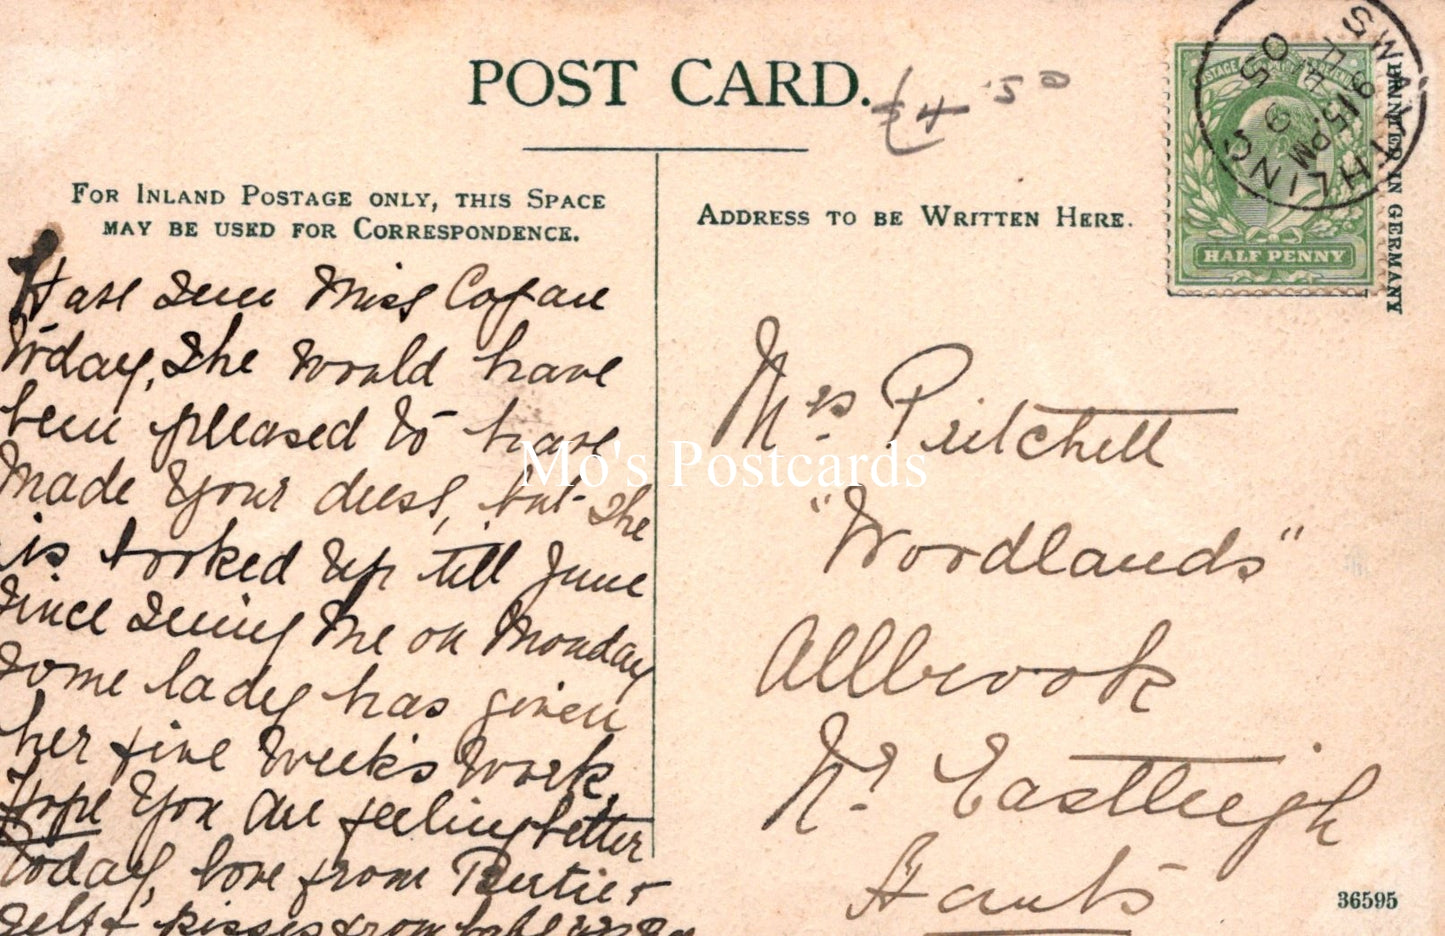 POST CARD.
£4 50
FOR INLAND POSTAGE ONLY, THIS SPACE
MAY BE USED FOR CORRESPONDENCE.
ADDRESS TO BE WRITTEN HERE.
HALF PENNY
PRINTED IN GERMANY
SWAYTHLING
9 15 PM
05
Have seen Miss Cogan
Today, She would have
been pleased to have
made your dress, but she
is booked up till June
since seeing me on Monday
some lady has given
her five weeks work,
Hope you are feeling better
today, love from Bertie +
self + kisses from
Mrs. Pritchett
"Woodlands"
Allbrook
Nr. Eastleigh
Hants
36595
Mo's Postcards